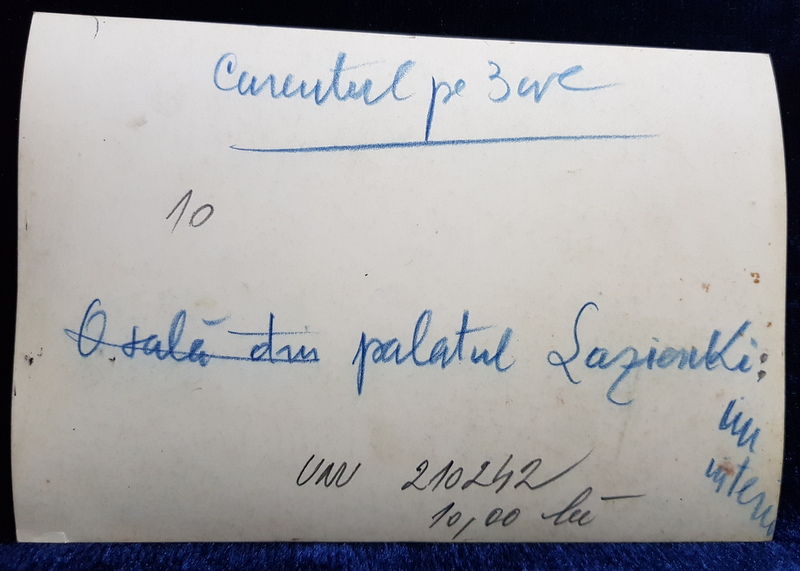 Curentul pe 3 ore
10
O sală din palatul Lazienki:
un
interi
210242
10,00 lei